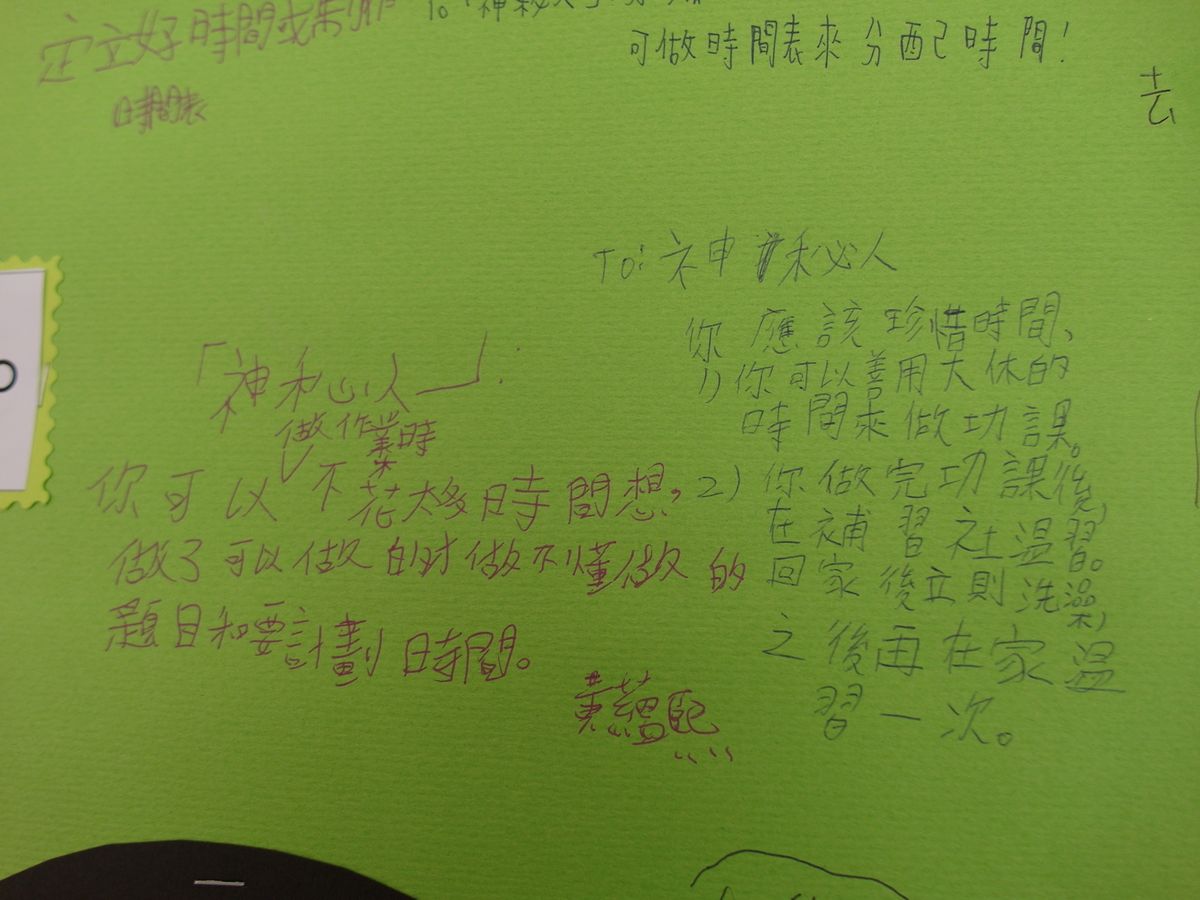 定立好時間或制作
時間表
To「神秘人」
可做時間表來分配時間!
去
To: 神秘人
你應該珍惜時間、
1) 你可以善用大休的
時間來做功課。
2) 你做完功課後,
在補習社温習。
回家後立則洗澡,
之後再在家温
習一次。
「神秘人」:
做作業時
你可以不花太多時間想,
做了可以做的才做不懂做的
題目和要計劃時間。